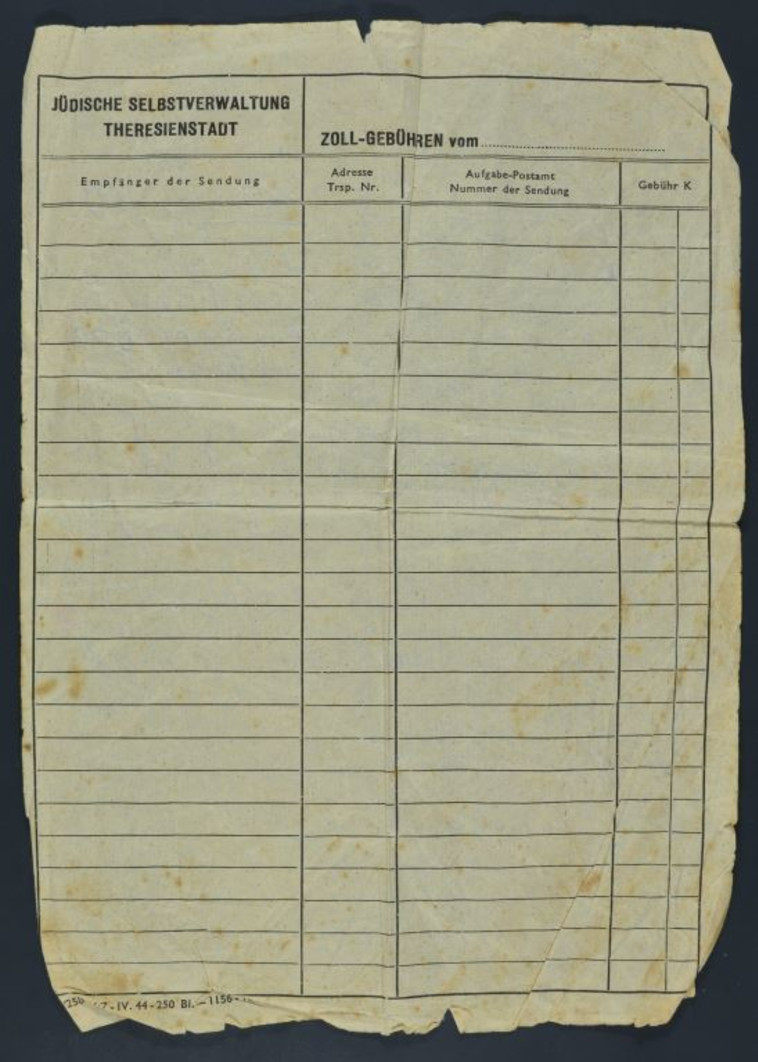 JÜDISCHE SELBSTVERWALTUNG
THERESIENSTADT
ZOLL-GEBÜHREN vom
Empfänger der Sendung
Adresse
Trsp. Nr.
Aufgabe-Postamt
Nummer der Sendung
Gebühr K
IV. 44-250 Bl. – 1156-